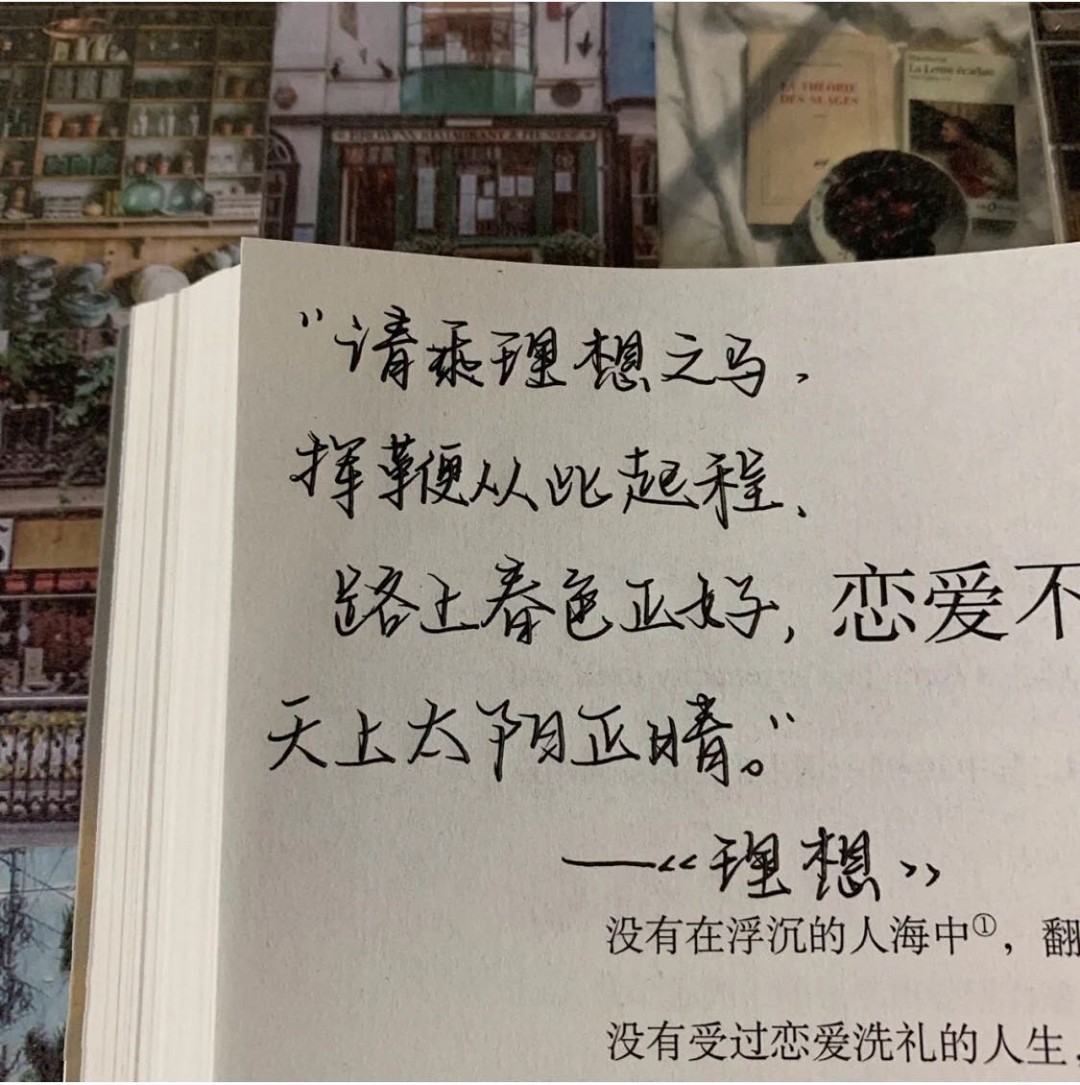 LA THÉORIE
DES NUAGES
La Lettre écarlate
"请乘理想之马，
挥鞭从此起程，
路上春色正好，
恋爱不
天上太阳正晴。"
——《理想》
没有在浮沉的人海中①，翻
没有受过恋爱洗礼的人生，